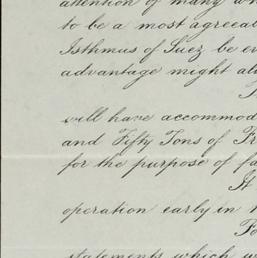 attention of many wh
to be a most agreeab
Isthmus of Suez be ev
advantage might al
will have accommod
and Fifty Tons of Fr
for the purpose of fa
It
operation early in
Fo
statements which w